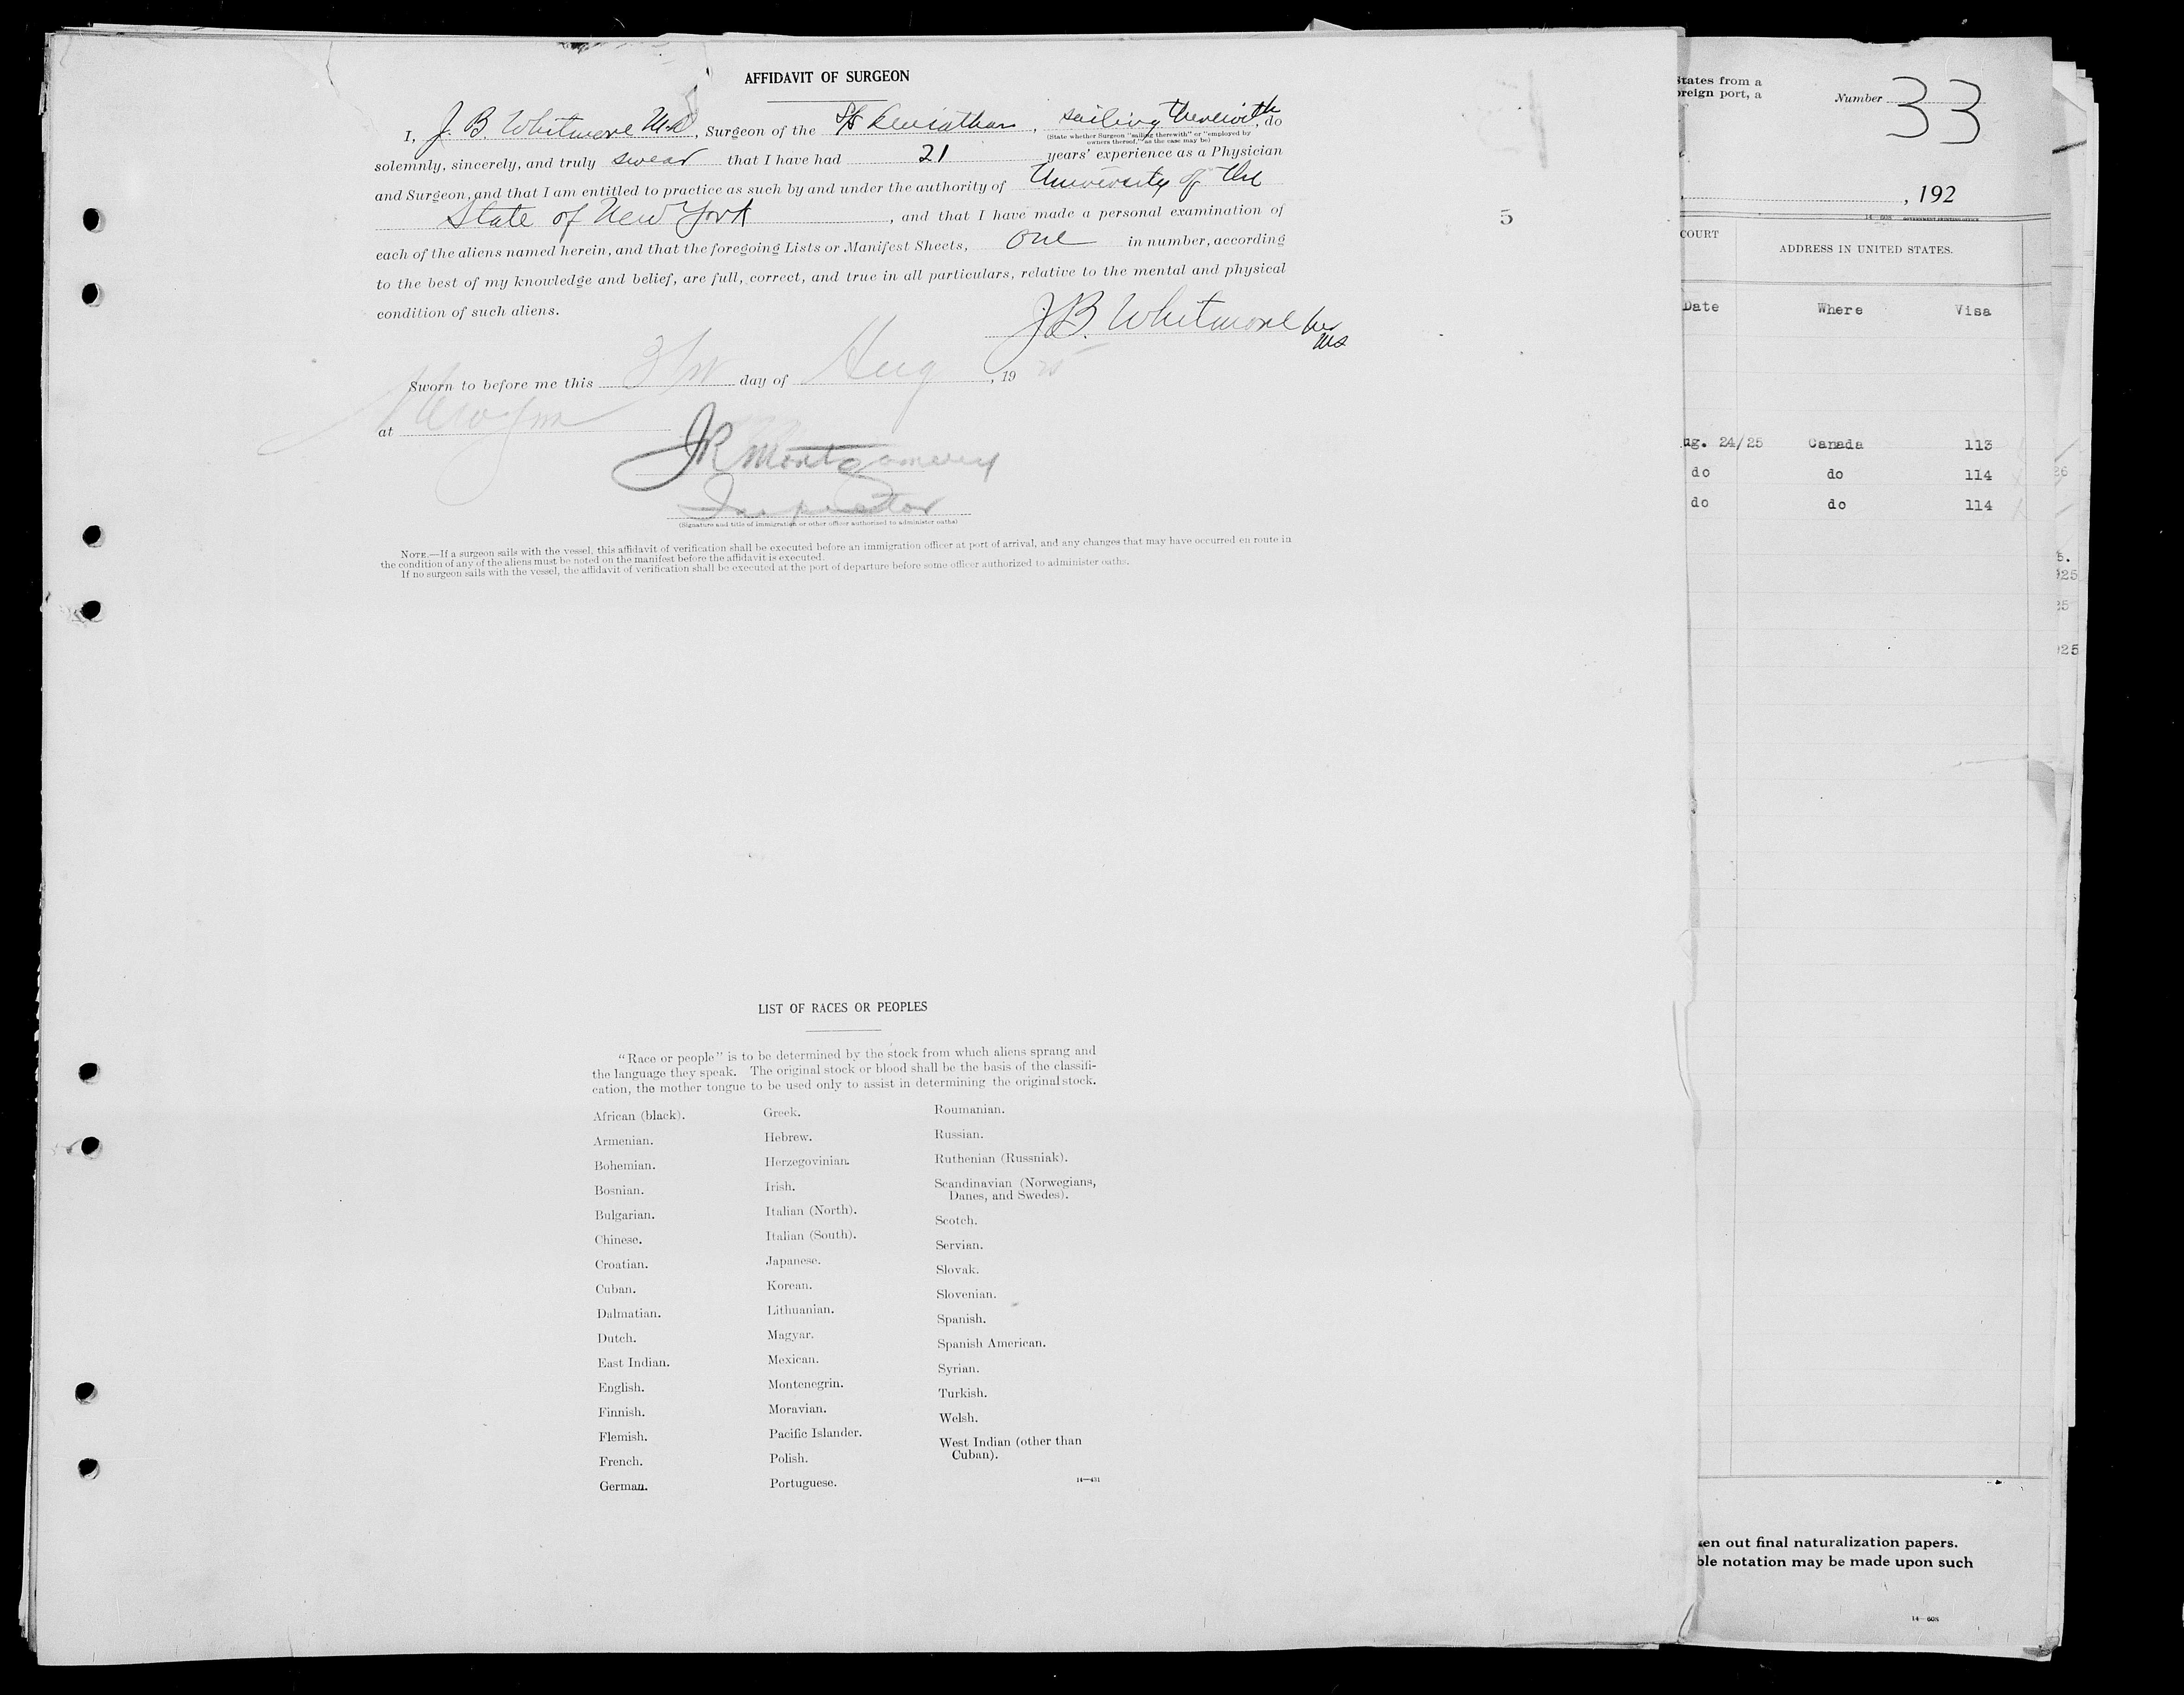 AFFIDAVIT OF SURGEON
I, J. B. Whitmore M.D., Surgeon of the S/S Leviathan, sailing therewith, do
(State whether Surgeon "sailing therewith" or "employed by
owners thereof," as the case may be)
solemnly, sincerely, and truly swear that I have had 21 years' experience as a Physician
and Surgeon, and that I am entitled to practice as such by and under the authority of University of the
State of New York, and that I have made a personal examination of
each of the aliens named herein, and that the foregoing Lists or Manifest Sheets, one in number, according
to the best of my knowledge and belief, are full, correct, and true in all particulars, relative to the mental and physical
condition of such aliens.
J B. Whitmore
Sworn to before me this 31st day of Aug, 1925
at
JR Montgomery
Inspector
(Signature and title of immigration or other officer authorized to administer oaths)
NOTE.—If a surgeon sails with the vessel, this affidavit of verification shall be executed before an immigration officer at port of arrival, and any changes that may have occurred en route in
the condition of any of the aliens must be noted on the manifest before the affidavit is executed.
If no surgeon sails with the vessel, the affidavit of verification shall be executed at the port of departure before some officer authorized to administer oaths.
5
LIST OF RACES OR PEOPLES
"Race or people" is to be determined by the stock from which aliens sprang and
the language they speak. The original stock or blood shall be the basis of the classifi-
cation, the mother tongue to be used only to assist in determining the original stock.
African (black).
Armenian.
Bohemian.
Bosnian.
Bulgarian.
Chinese.
Croatian.
Cuban.
Dalmatian.
Dutch.
East Indian.
English.
Finnish.
Flemish.
French.
German.
Greek.
Hebrew.
Herzegovinian.
Irish.
Italian (North).
Italian (South).
Japanese.
Korean.
Lithuanian.
Magyar.
Mexican.
Montenegrin.
Moravian.
Pacific Islander.
Polish.
Portuguese.
Roumanian.
Russian.
Ruthenian (Russniak).
Scandinavian (Norwegians,
Danes, and Swedes).
Scotch.
Servian.
Slovak.
Slovenian.
Spanish.
Spanish American.
Syrian.
Turkish.
Welsh.
West Indian (other than
Cuban).
14—431
States from a
oreign port, a
Number 33
, 192
14—608 GOVERNMENT PRINTING OFFICE
COURT
ADDRESS IN UNITED STATES.
Date Where Visa
ug. 24/25 Canada 113
do do 114
do do 114
26
5.
925
25
925
en out final naturalization papers.
ble notation may be made upon such
14—608